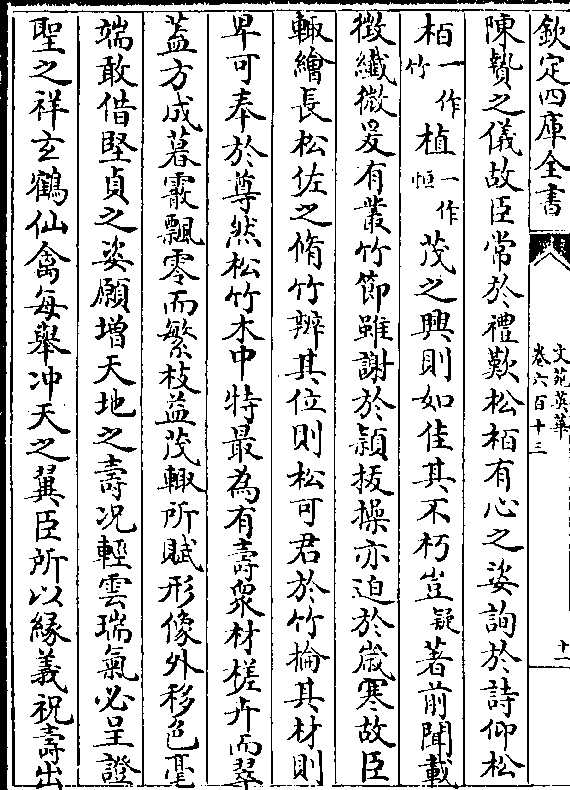 欽定四庫全書
文苑英華
卷六百十三
十一
陳贄之儀故臣常於禮歎松栢有心之姿詢於詩仰松
栢一作竹植一作恒茂之興則如佳其不朽豈疑著前聞載
徴纖微爰有叢竹節雖謝於頴拔操亦迫於嵗寒故臣
輙繪長松佐之脩竹辨其位則松可君於竹掄其材則
卑可奉於尊然松竹木中特最為有壽衆材槎卉而翠
葢方成暮霰飄零而繁枝益茂輙所賦形像外移色毫
端敢借堅貞之姿願增天地之壽况輕雲瑞氣必呈證
聖之祥玄鶴仙禽每舉冲天之翼臣所以緣義祝壽出